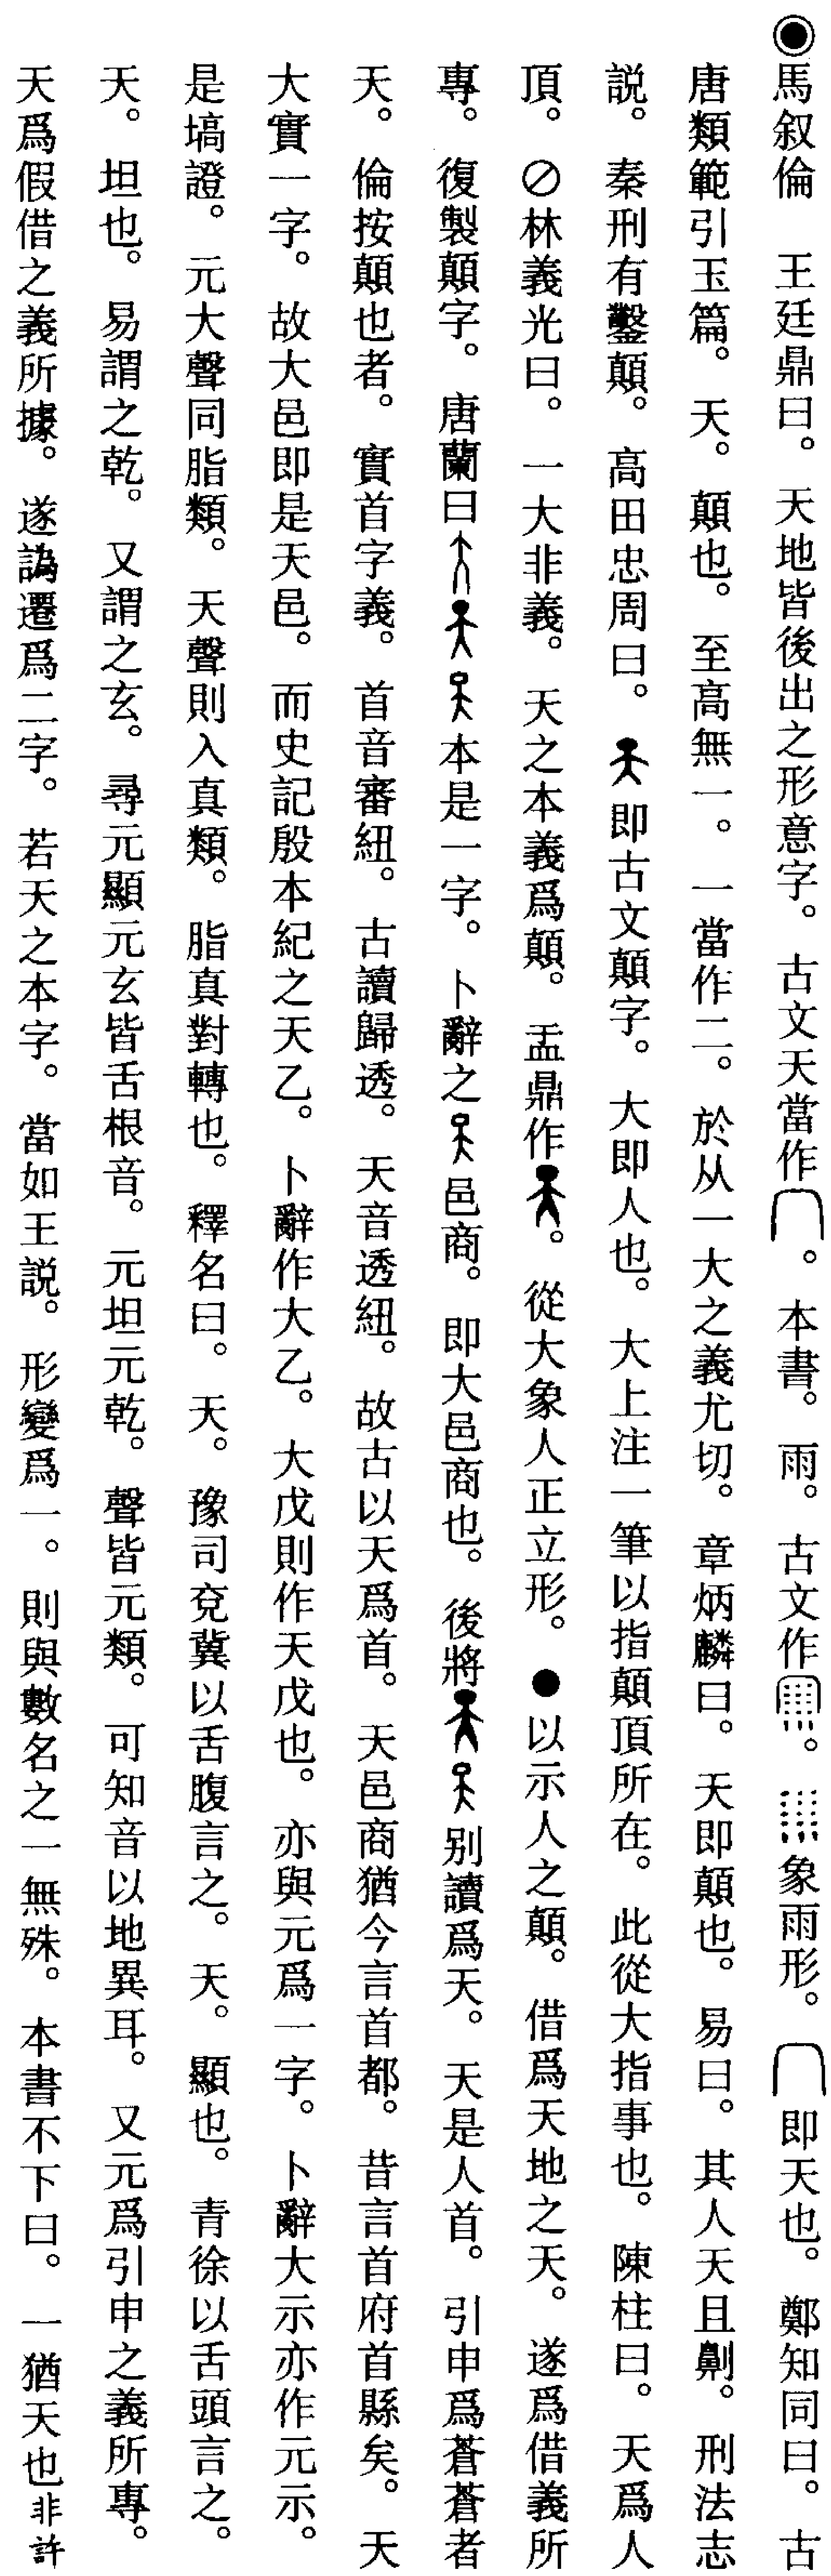 ◉馬叙倫　王廷鼎曰。天地皆後出之形意字。古文天當作。本書。雨。古文作。象雨形。即天也。鄭知同曰。古
唐類範引玉篇。天。顛也。至高無一。一當作二。於从一大之義尤切。章炳麟曰。天即顛也。易曰。其人天且劓。刑法志
説。秦刑有鑿顛。高田忠周曰。即古文顛字。大即人也。大上注一筆以指顛頂所在。此從大指事也。陳柱曰。天爲人
頂。⊘林義光曰。一大非義。天之本義爲顛。盂鼎作。從大象人正立形。●以示人之顛。借爲天地之天。遂爲借義所
專。復製顛字。唐蘭曰本是一字。卜辭之邑商。即大邑商也。後將别讀爲天。天是人首。引申爲蒼蒼者
天。倫按顛也者。實首字義。首音審紐。古讀歸透。天音透紐。故古以天爲首。天邑商猶今言首都。昔言首府首縣矣。天
大實一字。故大邑即是天邑。而史記殷本紀之天乙。卜辭作大乙。大戊則作天戊也。亦與元爲一字。卜辭大示亦作元示。
是塙證。元大聲同脂類。天聲則入真類。脂真對轉也。釋名曰。天。豫司兗冀以舌腹言之。天。顯也。青徐以舌頭言之。
天。坦也。易謂之乾。又謂之玄。尋元顯元玄皆舌根音。元坦元乾。聲皆元類。可知音以地異耳。又元爲引申之義所專。
天爲假借之義所據。遂譌遷爲二字。若天之本字。當如王説。形變爲一。則與數名之一無殊。本書不下曰。一猶天也非許